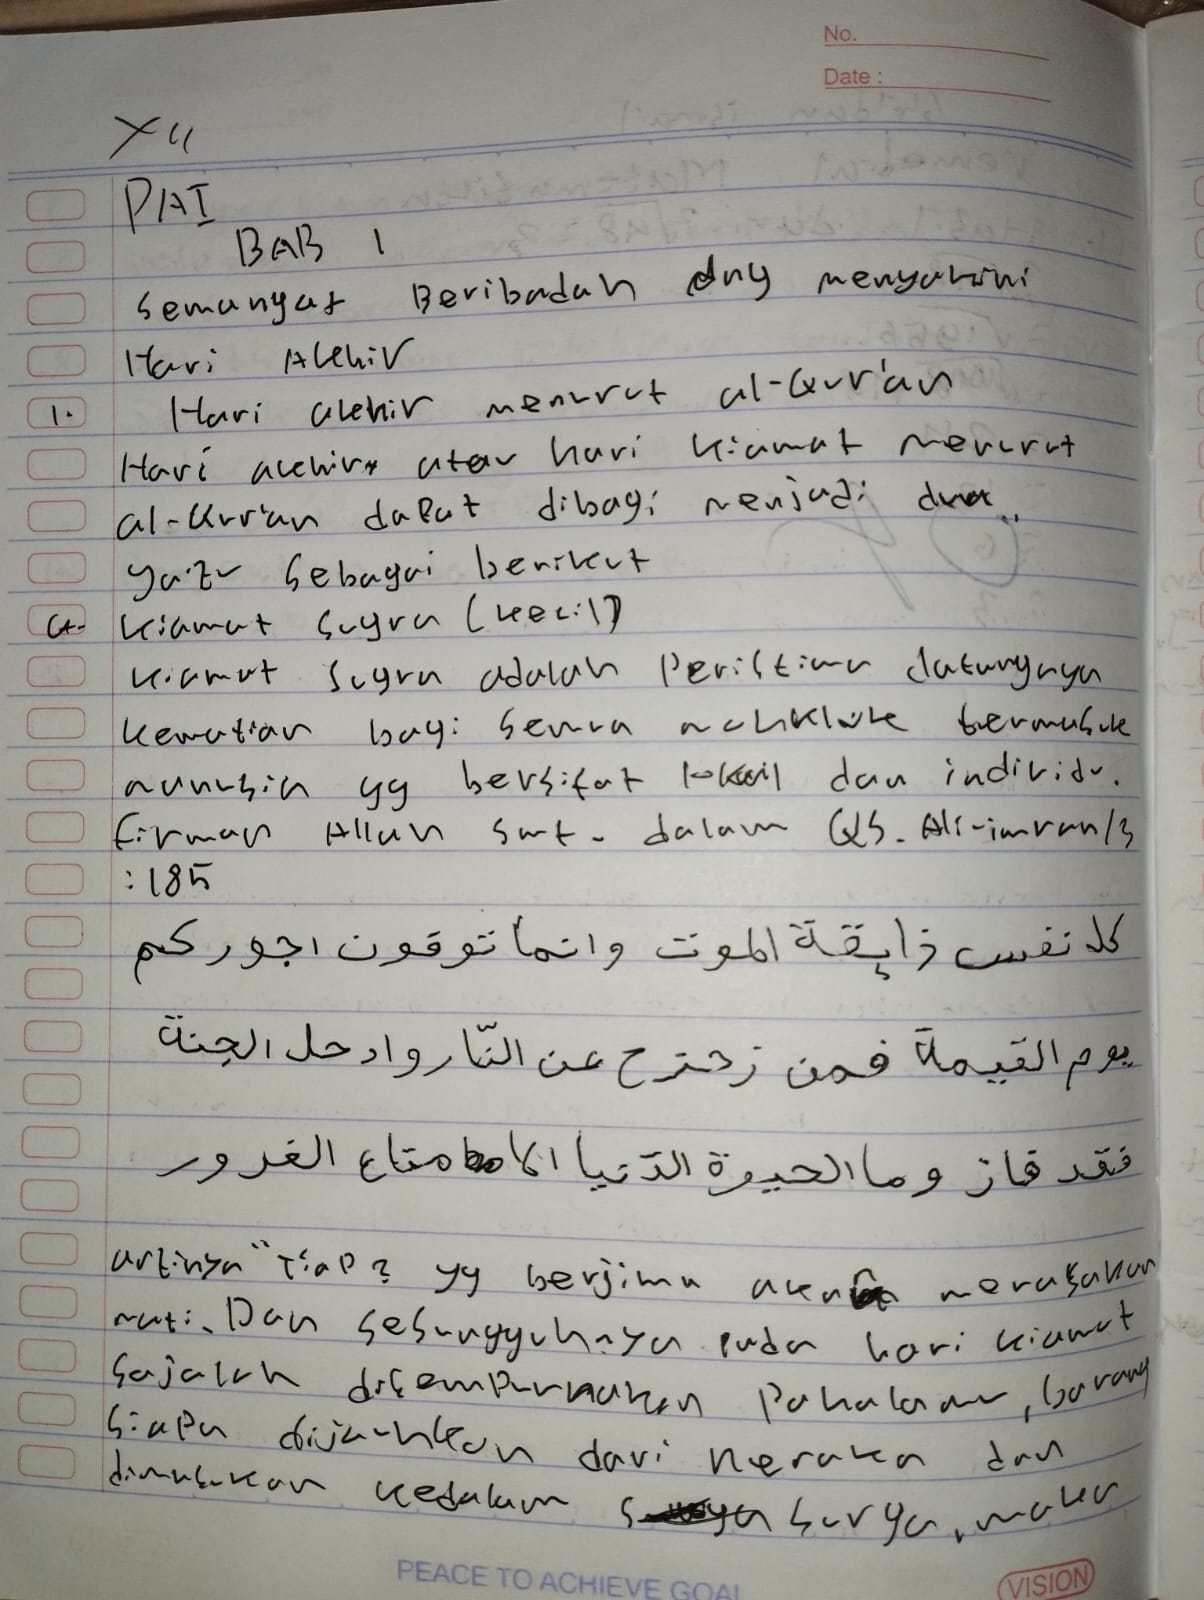 No.
Date :
XII
PAI
BAB 1
Semangat Beribadah dng menyakini
Hari Akhir
1. Hari akhir menurut al-Qur'an
Hari akhir atau hari kiamat menurut
al-Qur'an dapat dibagi menjadi dua
yaitu sebagai berikut
a. kiamat sugra (kecil)
kiamat sugra adalah Peristiwa datangnya
kematian bagi semua makhluk termasuk
manusia yg bersifat lokal dan individu.
firman Allah swt. dalam QS. Ali-imran/3
:185
كل نفس ذايقة الموت وانما توقون اجوركم
يوم القيمة فمن زحزح عن النّار وادحل الجنة
فقد فاز وما الحيوة الدّنيا الا متاع الغرور
artinya "Tiap2 yg berjiwa akan merasakan
mati. Dan sesungguhnya pada hari kiamat
sajalah disempurnakan Pahalamu, barang
siapa dijauhkan dari neraka dan
dimasukan kedalam surga, maka
PEACE TO ACHIEVE GOAL
VISION